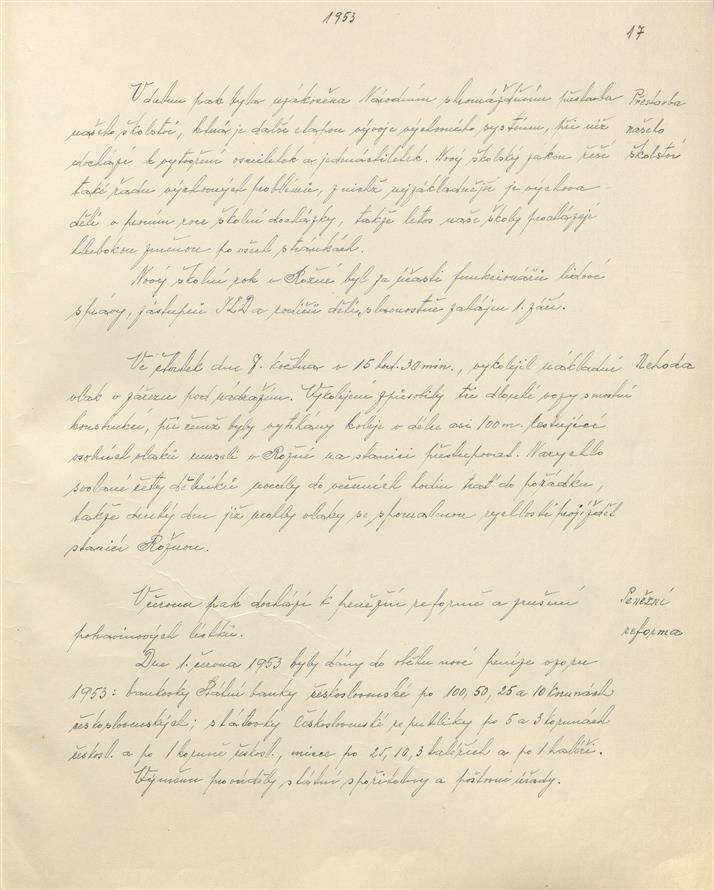 1953
17
V dubnu pak byla uzákoněna Národním shromážděním přestavba Přestavba
našeho školství, která je další etapou vývoje výchovného systému, při níž našeho
dochází k vytvoření osmiletek a jedenáctiletek. Nový školský zákon řeší školství
také řadu výchovných problémů, z nichž nejzákladnější je výchova
dětí v prvním roce školní docházky, takže letos naše školy procházejí
hlubokou změnou po všech stránkách.
Nový školní rok v Rožné byl za účasti funkcionářů lidové
správy, zástupců JZD a rodičů dětí, slavnostně zahájen 1. září.
Ve čtvrtek dne 7. května v 15 hod. 30 min., vykolejil nákladní Nehoda
vlak v zářezu pod nádražím. Vykolejení způsobily tři dlouhé vozy s mostní
konstrukcí, při čemž byly vytrhány koleje v délce asi 100 m. Cestující
osobních vlaků museli v Rožné na stanici přestupovat. Narychlo
svolané čety dělníků uvedly do večerních hodin trať do pořádku,
takže druhý den již mohly vlaky se zpomalenou rychlostí projíždět
stanicí Rožnou.
V červnu pak dochází k peněžní reformě a zrušení Peněžní
potravinových lístků. reforma
Dne 1. června 1953 byly dány do oběhu nové peníze vzoru
1953: bankovky Státní banky československé po 100, 50, 25 a 10 korunách
československých; státovky Československé republiky po 5 a 3 korunách
českosl. a po 1 koruně českosl., mince po 25, 10, 3 haléřích a po 1 haléři.
Výměnu prováděly státní spořitelny a poštovní úřady.